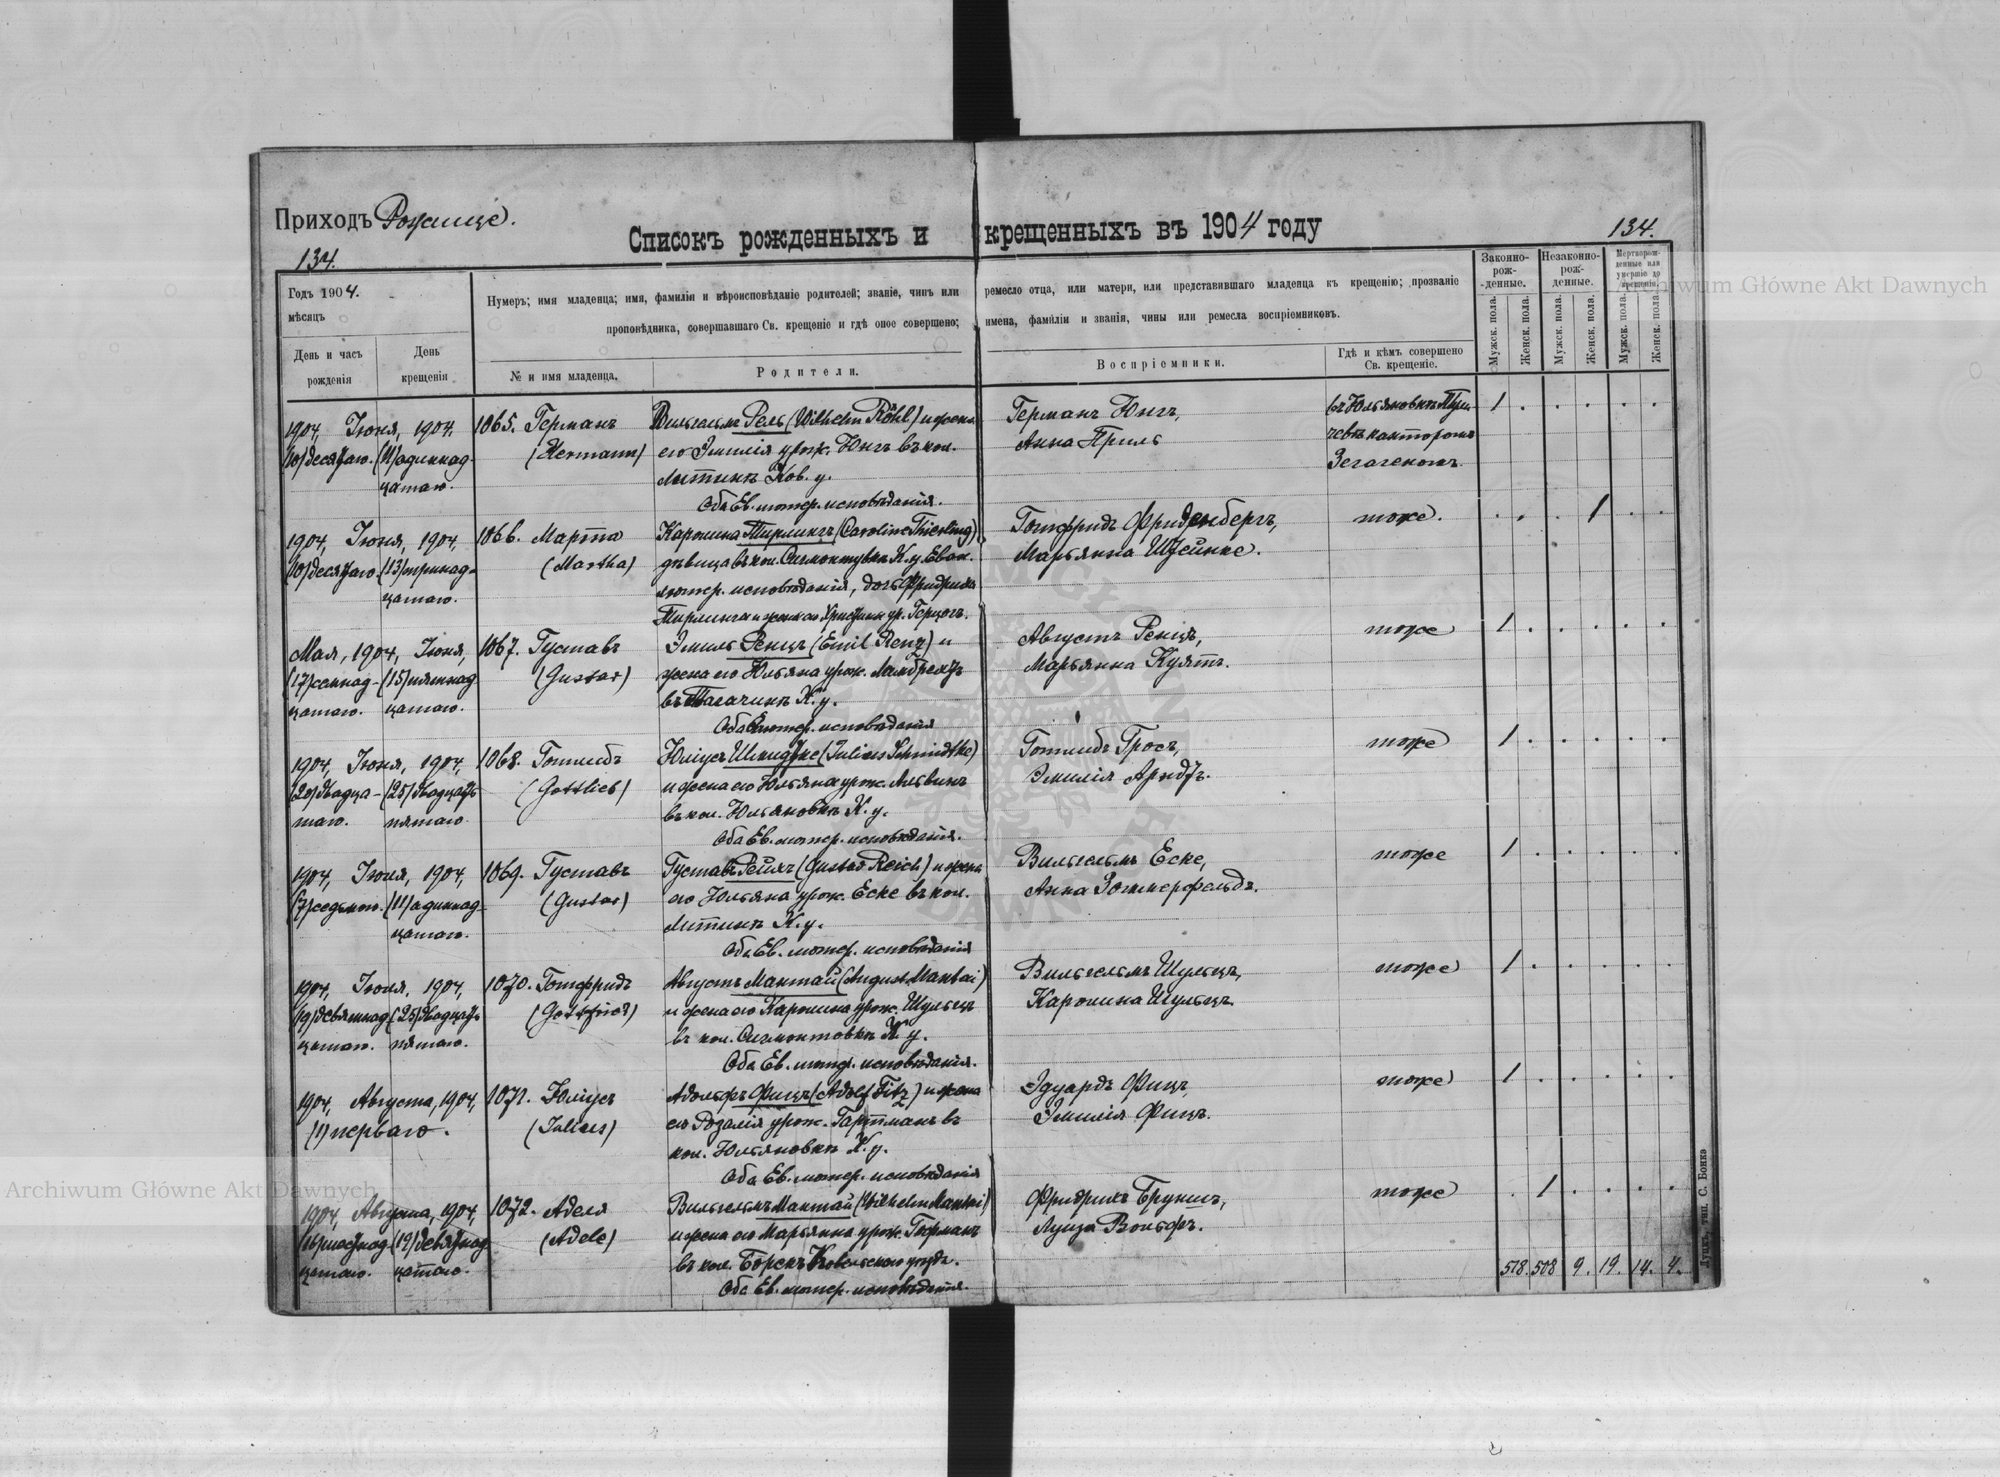 Приходъ Рожище.
Списокъ рожденныхъ и крещенныхъ въ 1904 году
134.
134.
Годъ 1904.
мѣсяцъ
День и часъ рожденія
День крещенія
Нумеръ; имя младенца; имя, фамилія и вѣроисповѣданіе родителей; званіе, чинъ или ремесло отца, или матери, или представившаго младенца къ крещенію; прозваніе
проповѣдника, совершавшаго Св. крещеніе и гдѣ оное совершено; имена, фамиліи и званія, чины или ремесла воспріемниковъ.
№ и имя младенца.
Родители.
Воспріемники.
Гдѣ и кѣмъ совершено Св. крещеніе.
Законно-рож-денные.
Незаконно-рож-денные.
Мертворож-денные или умершіе до крещенія.
Мужск. пола.
Женск. пола.
Мужск. пола.
Женск. пола.
Мужск. пола.
Женск. пола.
1904, Іюня, 1904,
(10) десятаго. (11) одиннад-
цатаго.
1065. Германъ
(Hermann)
Вильгельмъ Рель (Wilhelm Röhl) и жена
его Эмилія урож. Юнгъ въ кол.
Литинъ Ков. у.
Оба Ев. лютер. исповѣданія.
Германъ Юнгъ,
Анна Приль
въ Юльяновкѣ
канторомъ
1
1904, Іюня, 1904,
(10) десятаго. (13) тринад-
цатаго.
1066. Марта
(Martha)
Каролина Тирлингъ (Caroline Thierling)
дѣвица въ кол. К. у. Еван.
лютер. исповѣданія, дочь Фридриха
Тирлинга и жены его Христины ур. Герцогъ.
Готфридъ Фриденбергъ,
Марьянна
тоже.
1
Мая, 1904, Іюня,
(17) семнад- (15) пятнад
цатаго. цатаго.
1067. Густавъ
(Gustav)
Эмиль Ренцъ (Emil Renz) и
жена его Юльяна урож. Ламбрехтъ
въ К. у.
Оба лютер. исповѣданія
Августъ Ренцъ,
Марьянна Куятъ.
тоже
1
1904, Іюня, 1904,
(20) двадца- (25) двадцать
таго. пятаго
1068. Готлибъ
(Gottlieb)
Юліусъ Шмидтке (Julius Schmidtke)
и жена его Юльяна урож.
въ кол. Юльяновкѣ К. у.
Оба Ев. лютер. исповѣданія.
Готлибъ Гросъ,
Эмилія Арндтъ.
тоже
1
1904, Іюня, 1904,
(7) седьмого. (11) одиннад-
цатаго.
1069. Густавъ
(Gustav)
Густавъ Рейхъ (Gustav Reich) и жена
его Юльяна урож. Еске въ кол.
Литинъ К. у.
Оба Ев. лютер. исповѣданія
Вильгельмъ Еске,
Анна Зоммерфельдъ.
тоже
1
1904, Іюня, 1904,
(19) девятнад (25) двадцать
цатаго. пятаго.
1070. Готфридъ
(Gottfried)
Августъ Мантай (August Mantai)
и жена его Каролина урож. Шульцъ
въ кол. К. у.
Оба Ев. лютер. исповѣданія.
Вильгельмъ Шульцъ,
Каролина Шульцъ.
тоже
1
1904, Августа, 1904,
(1) перваго.
1071. Юліусъ
(Julius)
Адольфъ Фицъ (Adolf Fitz) и жена
его Розалія урож. Гартманъ въ
кол. Юльяновкѣ К. у.
Оба Ев. лютер. исповѣданія
Эдуардъ Фицъ,
Эмилія Фицъ.
тоже
1
1904, Августа, 1904,
(16) шестнад (19) девятнад
цатаго. цатаго.
1072. Аделя
(Adele)
Вильгельмъ Мантай (Wilhelm Mantai)
и жена его Марьянна урож. Гофманъ
въ кол. Борекъ Ковельскаго уѣзда.
Оба Ев. лютер. исповѣданія.
Фридрихъ
Луиза Вольфъ.
тоже
1
518. 508 9. 19. 14. 4.
Луцкъ, тип. С. Бонкэ
Archiwum Główne Akt Dawnych
Archiwum Główne Akt Dawnych